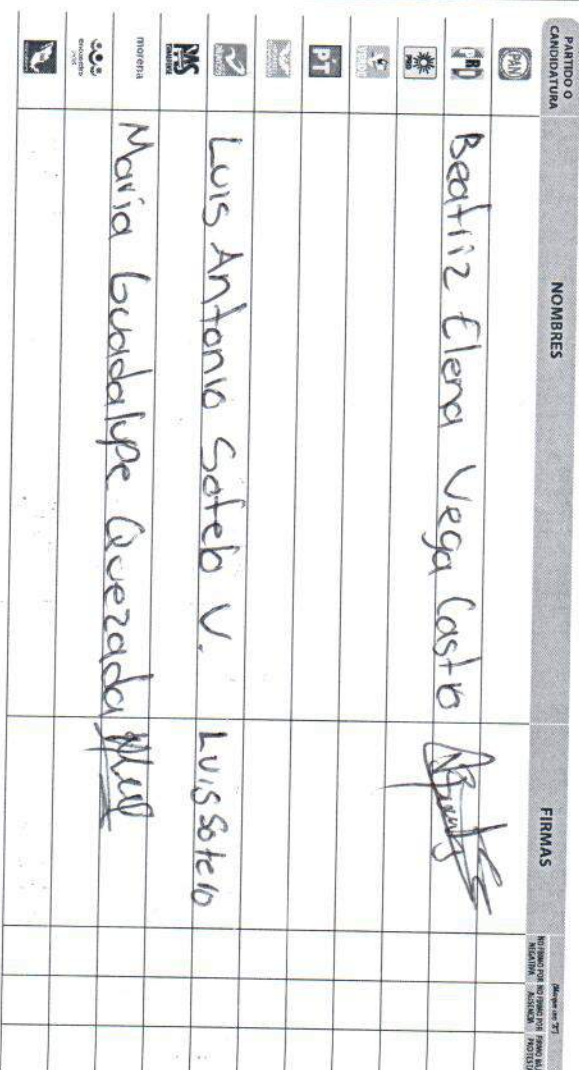 PARTIDO O
CANDIDATURA
NOMBRES
FIRMAS
(Marque con "X")
NO FIRMÓ POR
NEGATIVA
NO FIRMÓ POR
AUSENCIA
FIRMÓ BAJO
PROTESTA
PAN
PRD
Beatriz Elena Vega Castro
PT
Luis Antonio Sotelo V.
Luis Sotelo
PAS
morena
Maria Guadalupe Quezada
encuentro